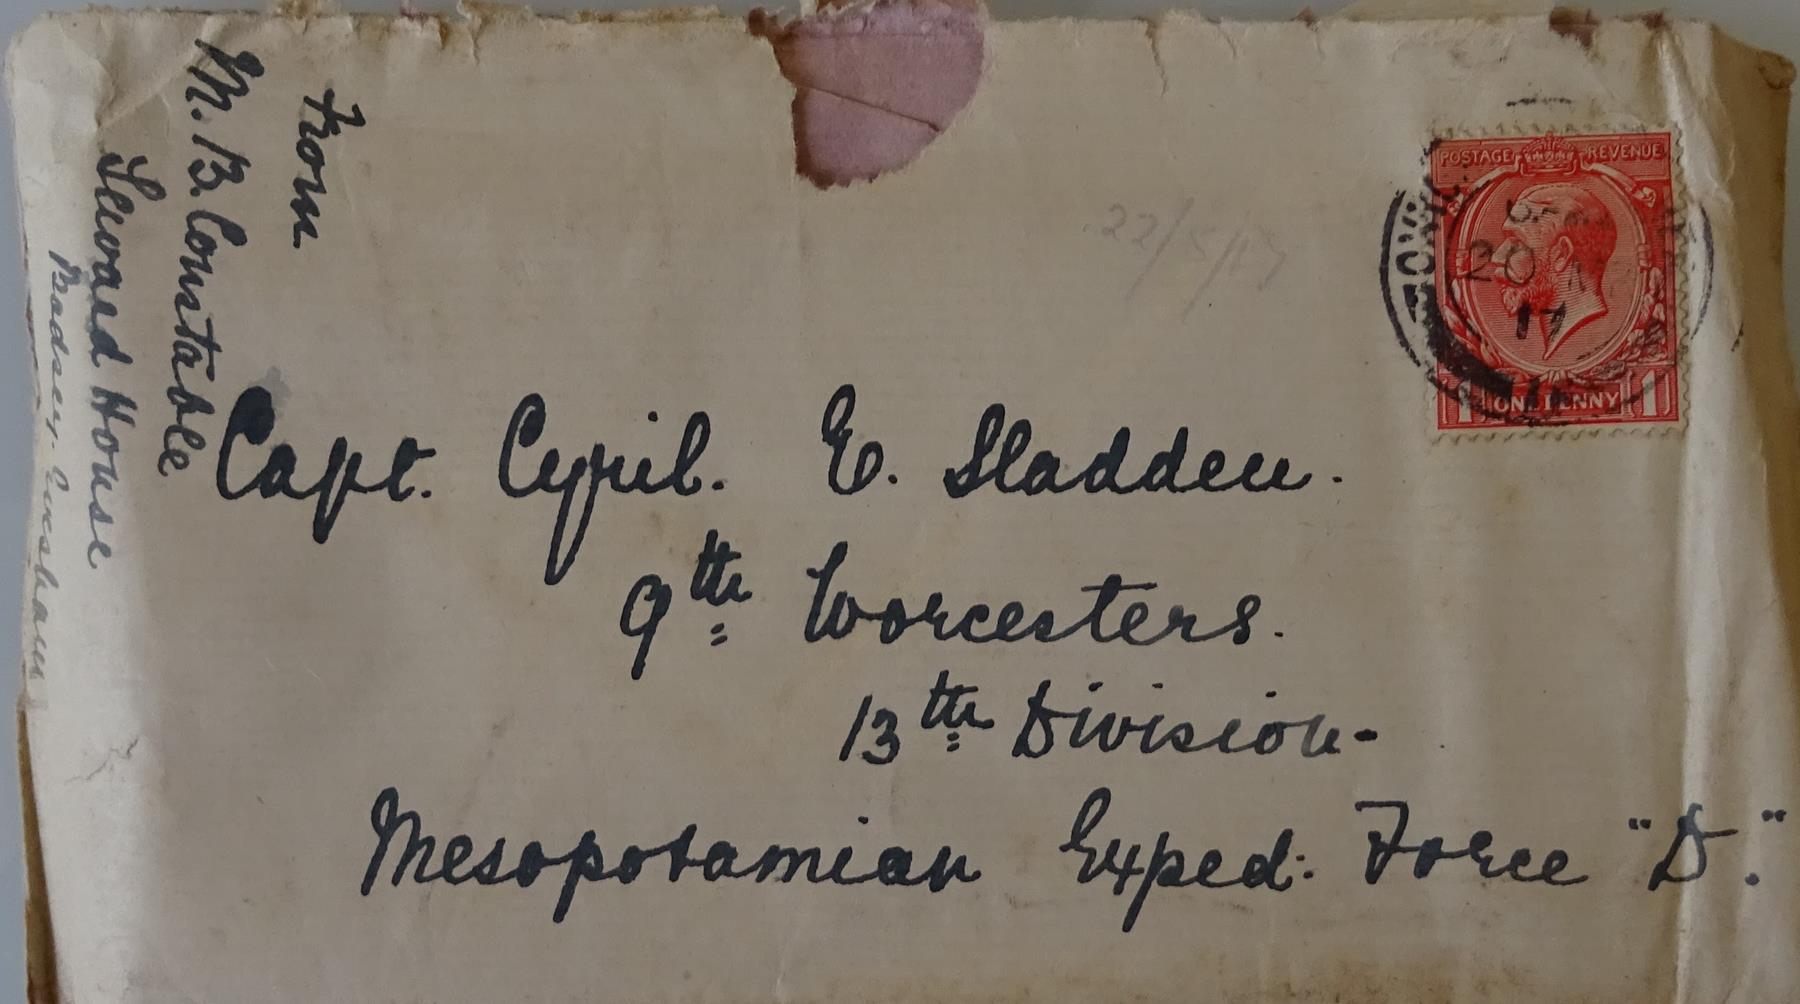 From
M. B. Constable
Seward House
Badsey, Evesham
22/5/17
POSTAGE REVENUE
20
17
1 ONE PENNY 1
Capt. Cyril. E. Sladden.
9th Worcesters.
13th Division-
Mesopotamian Exped: Force "D."